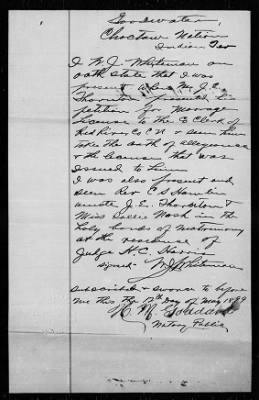 Goodwater,
Choctaw Nation
Indian Ter
I W. J. Whiteman on
oath state that I was
present when Mr J. E.
Thornton presented his
petition for Marriage
license to the Co Clerk of
Red River Co C N & seen him
take the oath of allegiance
& the license that was
issued to him
I was also present and
seen Rev C S Hamlin
unite J. E. Thornton &
Miss Sallie Nash in the
holy bonds of matrimony
at the residence of
Judge H. C. Harris
signed W J Whiteman
Subscribed & sworne to before
me this the 13th day of May 1899
N. M. Goddard
Notary Public